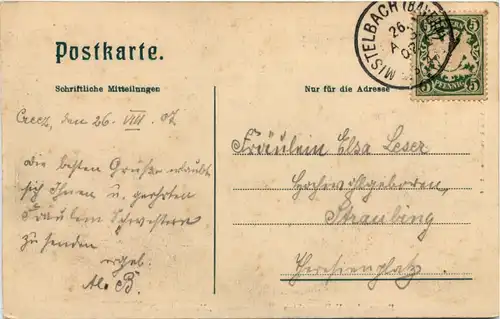 Postkarte.
MISTELBACH (BAYERN)
26.
5 5
PFENNIG
Schriftliche Mitteilungen
Nur für die Adresse
Creez, den 26. VIII. 07.
Die besten Grüße erlaubt
sich Ihnen u. geehrten
Fräulein Schwestern
zu senden
ergeb.
B.
Fräulein Elsa Leser
Hochwohlgeboren,
Straubing
Theresienplatz.